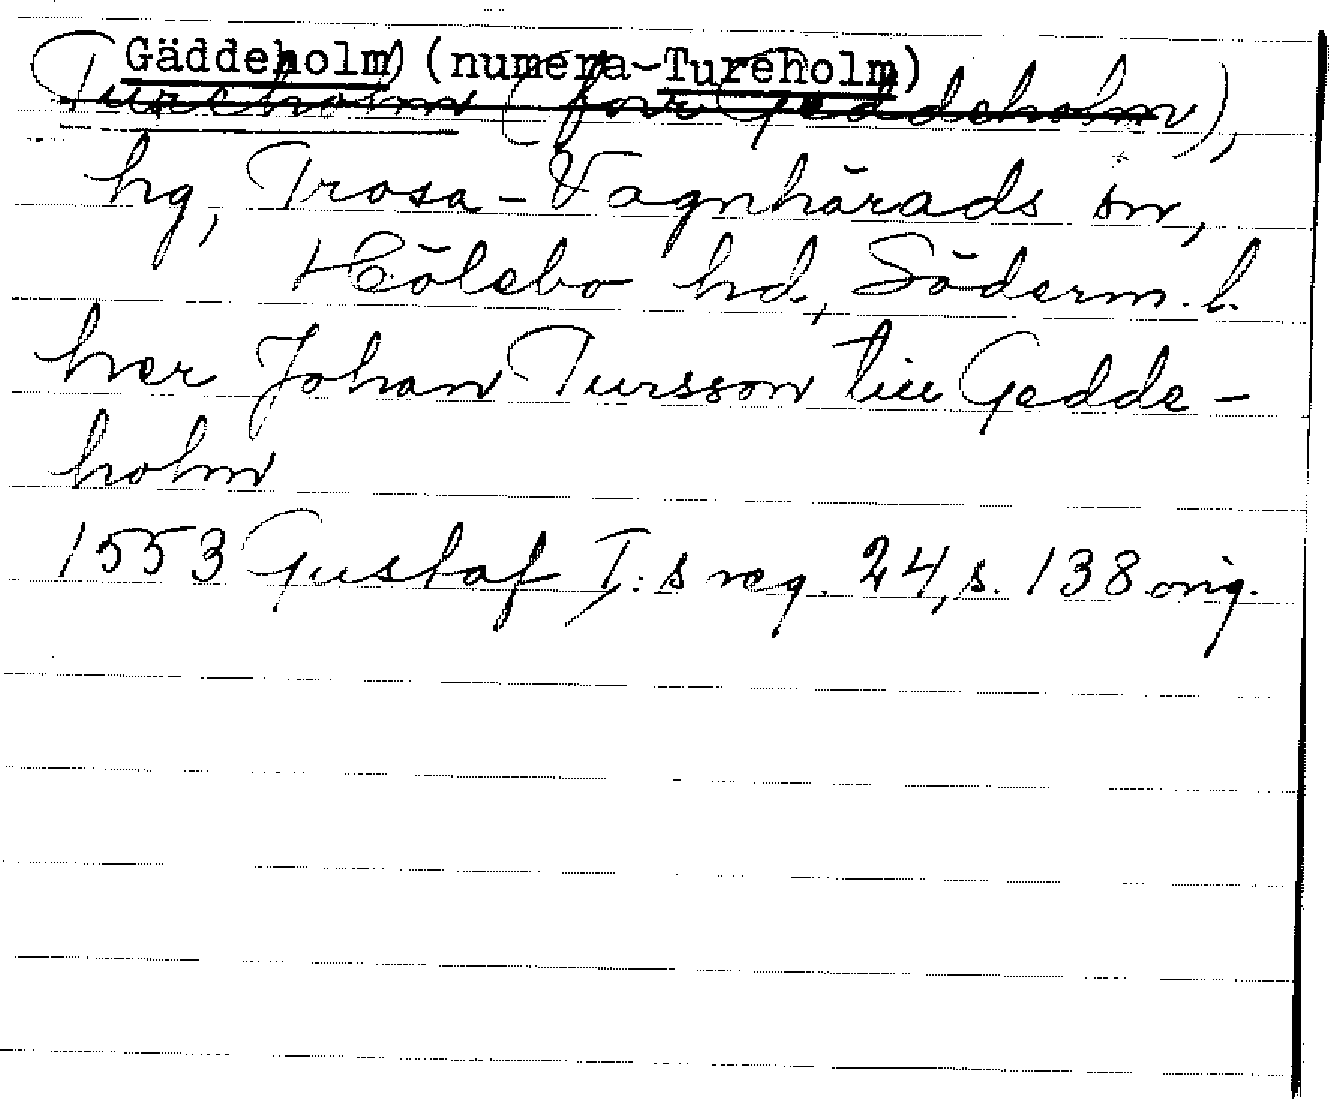 Gäddeholm (numera Tureholm)
Tureholm (förr Geddeholm),
hg, Trosa-Vagnhärads sn,
Hölebo hd, Söderm. l.
her Johan Tursson till Gedde-
holm
1553 Gustaf I:s reg. 24, s. 138 orig.